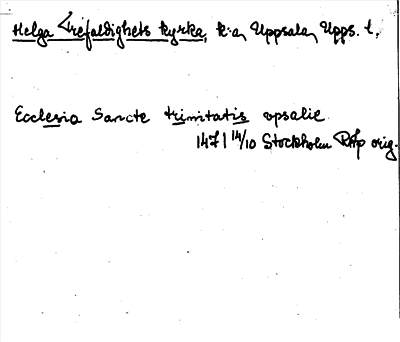 Helga Trefaldighets kyrka, k:a, Uppsala, Upps. l.
Ecclesia Sancte trinitatis vpsalie
1471 14/10 Stockholm RAp orig.